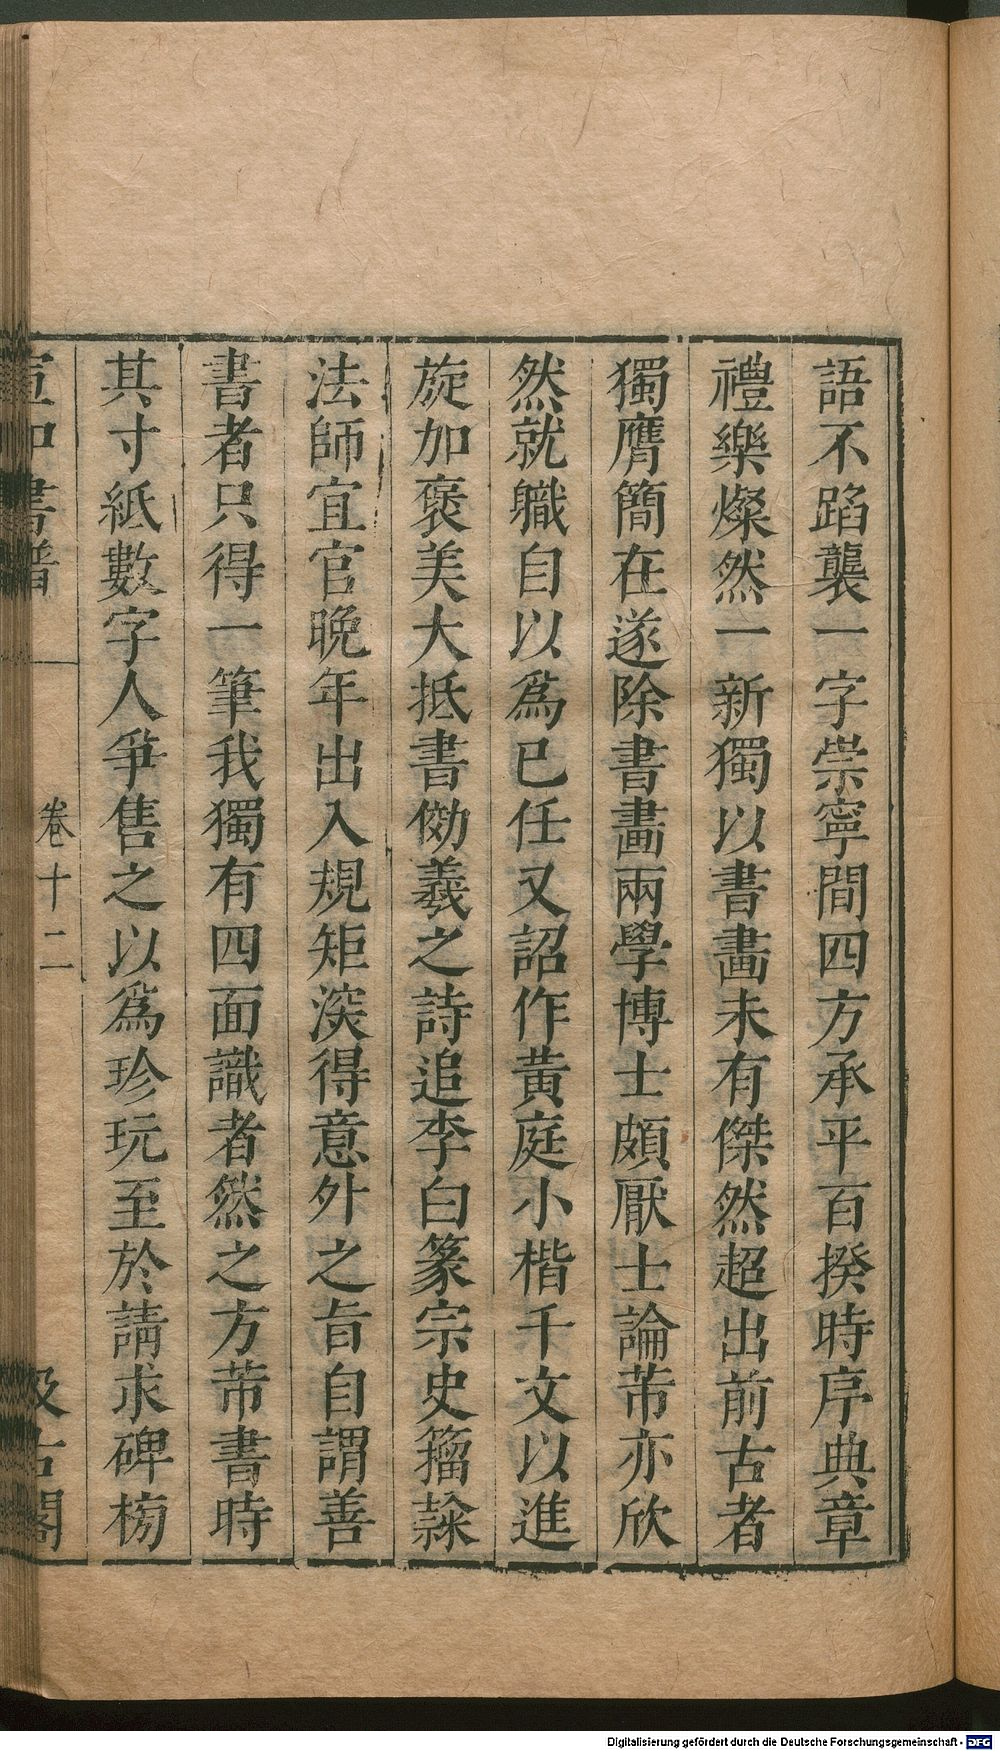 語不蹈襲一字崇寧間四方承平百揆時序典章
禮樂燦然一新獨以書畫未有傑然超出前古者
獨膺簡在遂除書畫兩學博士頗厭士論芾亦欣
然就職自以爲已任又詔作黄庭小楷千文以進
旋加褒美大抵書効羲之詩追李白篆宗史籀隸
法師宜官晩年出入規矩深得意外之旨自謂善
書者只得一筆我獨有四面識者然之方芾書時
其寸紙數字人爭售之以爲珍玩至於請求碑榜
宣和書譜
卷十二
汲古閣
Digitalisierung gefördert durch die Deutsche Forschungsgemeinschaft - DFG